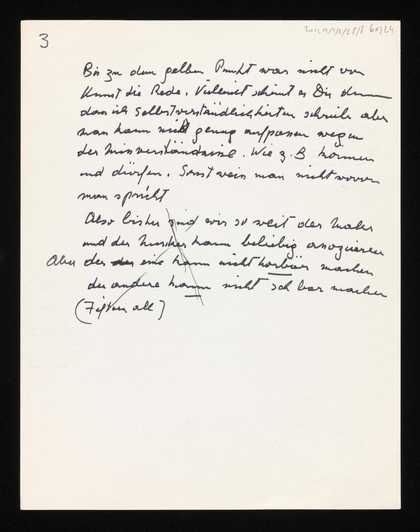 3
Bis zu dem gelben Punkt war nicht von
Kunst die Rede. Vielleicht scheint es Dir dumm
dass ich Selbstverständlichkeiten schreibe aber
man kann nicht genug aufpassen wegen
der Missverständnisse. Wie z.B können
und dürfen. Sonst weiss man nicht wovon
man spricht
Also bisher sind wir so weit der Maler
und der Musiker kann beliebig
Aber der der eine kann nicht hörbar machen
der andere kann nicht sehbar machen